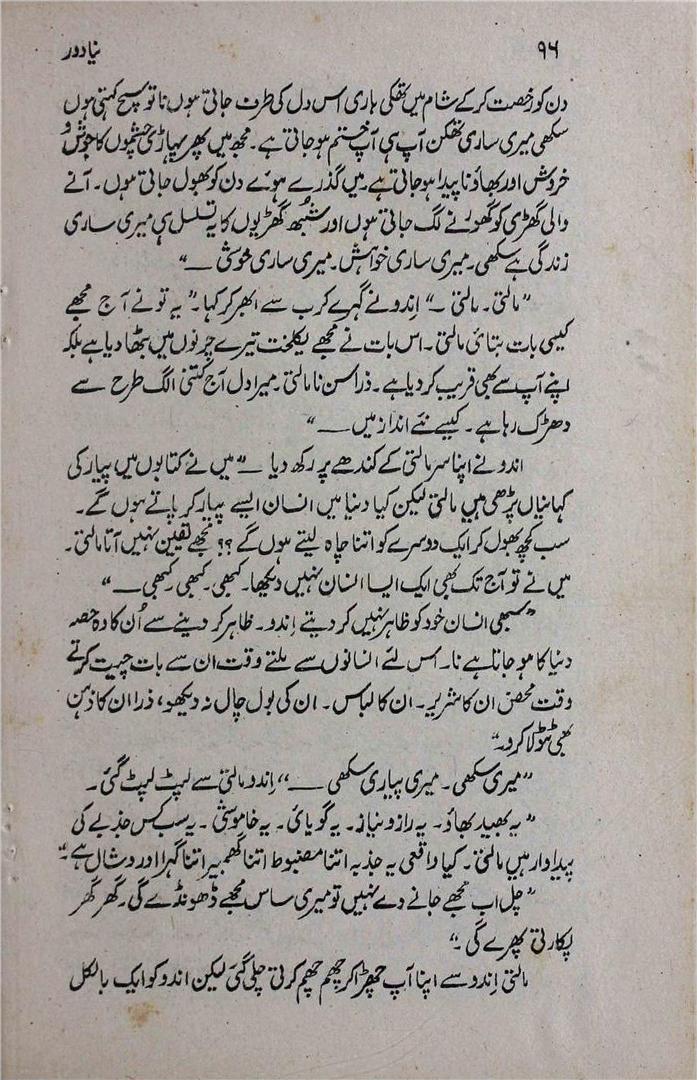 ۹۶ نیا دور
دن کو رخصت کرکے شام میں تھکی ہاری اس دل کی طرف جاتی ہوں نا تو سچ کہتی ہوں
سکھی میری ساری تھکن آپ ہی آپ ختم ہوجاتی ہے۔ مجھ میں پھر پہاڑی چشموں کا جوش و
خروش اور بھاؤنا پیدا ہوجاتی ہے۔ میں گذرے ہوئے دن کو بھول جاتی ہوں۔ آنے
والی گھڑی کو گھورنے لگ جاتی ہوں اور شُبھ گھڑیوں کا یہ تسلسل ہی میری ساری
زندگی ہے سکھی۔ میری ساری خواہش۔ میری ساری خوشی ــــ"
"مالتی۔ مالتی ــ" اِندو نے گہرے کرب سے ابھر کر کہا۔" یہ تو نے آج مجھے
کیسی بات بتائی مالتی۔ اس بات نے مجھے یکلخت تیرے چرنوں میں بٹھا دیا ہے بلکہ
اپنے آپ سے بھی قریب کردیا ہے۔ ذرا سن نا مالتی۔ میرا دل آج کتنی الگ طرح سے
دھڑک رہا ہے۔ کیسے نئے انداز میں ــــ"
اندو نے اپنا سر مالتی کے کندھے پر رکھ دیا ــ" میں نے کتابوں میں پیار کی
کہانیاں پڑھی ہیں مالتی لیکن کیا دنیا میں انسان ایسے پیار کر پاتے ہوں گے۔
سب کچھ بھول کر ایک دوسرے کو اتنا چاہ لیتے ہوں گے؟؟ مجھے یقین نہیں آتا مالتی۔
میں نے تو آج تک بھی ایک ایسا انسان نہیں دیکھا۔ کبھی۔ کبھی۔ کبھی ــــ"
"سبھی انسان خود کو ظاہر نہیں کردیتے اِندو۔ ظاہر کر دینے سے اُن کا وہ حصہ
دنیا کا ہوجاتا ہے نا۔ اس لئے انسانوں سے ملتے وقت ان سے بات چیت کرتے
وقت محض ان کا شریر۔ ان کا لباس۔ ان کی بول چال نہ دیکھو، ذرا ان کا ذہن
بھی ٹٹولا کرو۔"
"میری سکھی۔ میری پیاری سکھی ــــ" اِندو مالتی سے لپٹ لپٹ گئی۔
"یہ بھید بھاؤ۔ یہ راز و نیاز۔ یہ گویائی۔ یہ خاموشی۔ یہ سب کس جذبے کی
پیداوار ہیں مالتی۔ کیا واقعی یہ جذبہ اتنا مضبوط اتنا گمبھیر اتنا گہرا اور وشال ہے۔"
"چل اب مجھے جانے دے نہیں تو میری ساس مجھے ڈھونڈے گی۔ گھر گھر
پکارتی پھرے گی۔"
مالتی اِندو سے اپنا آپ چھڑا کر چھم چھم کرتی چلی گئی لیکن اندو کو ایک بالکل